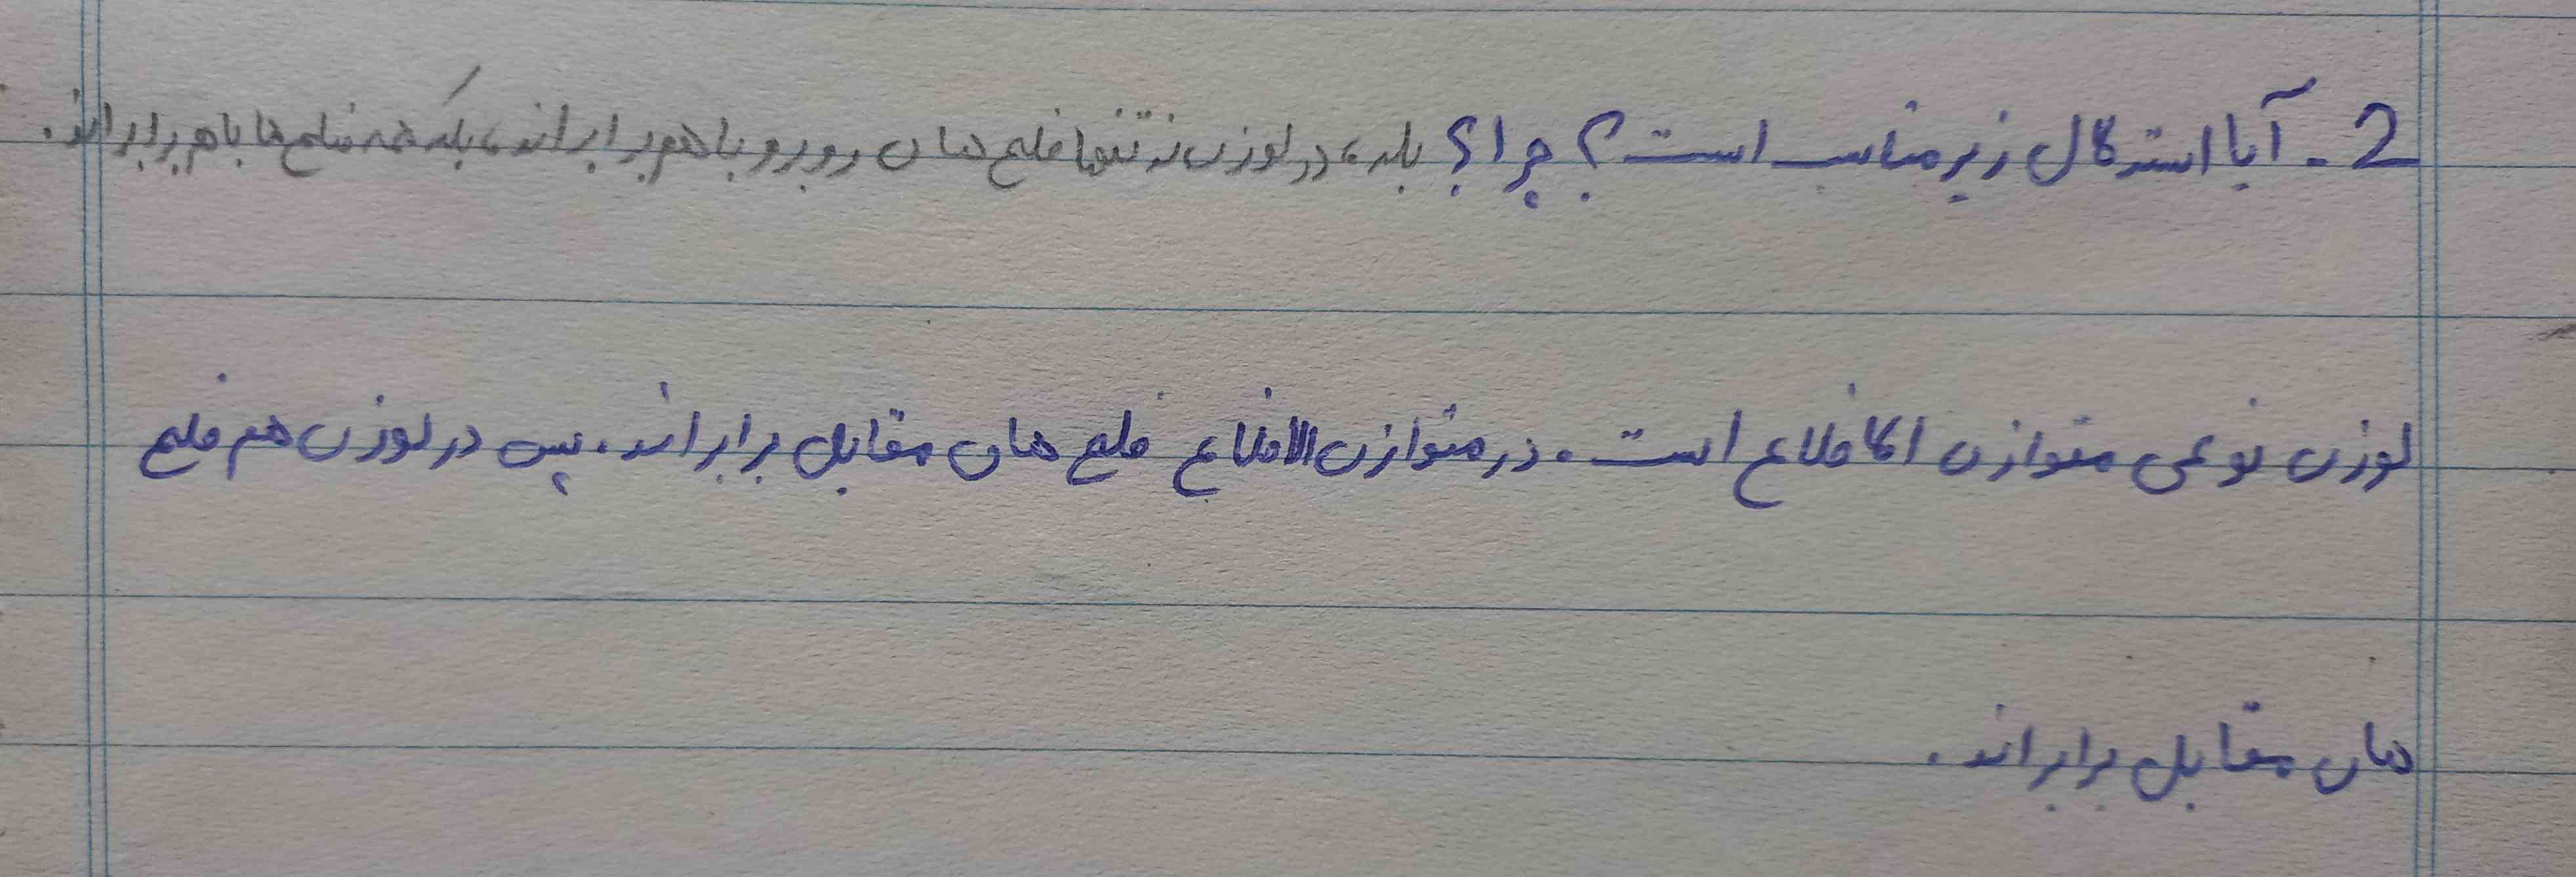 2- آیا استدلال زیر مناسب است؟ چرا؟ بله، در لوزی نه تنها ضلع های روبرو با هم برابر اند، بلکه همه ضلع ها با هم برابر اند.
لوزی نوعی متوازی الاضلاع است. در متوازی الاضلاع ضلع های مقابل برابر اند. پس در لوزی هم ضلع
های مقابل برابر اند.